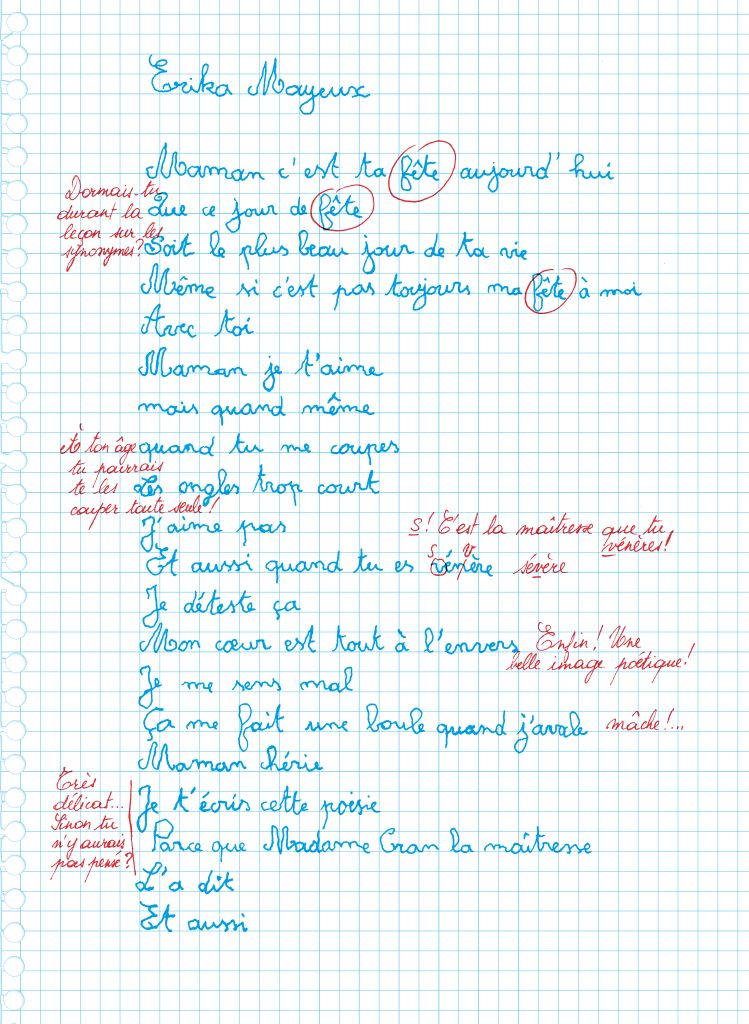 Erika Mayeux
Maman c'est ta fête aujourd'hui
Dormais-tu
durant la
leçon sur les
synonymes?
Que ce jour de fête
Soit le plus beau jour de ta vie
Même si c'est pas toujours ma fête à moi
Avec toi
Maman je t'aime
mais quand même
À ton âge
tu pourrais
te les
couper toute seule!
quand tu me coupes
Les ongles trop court
J'aime pas
S! C'est la maîtresse que tu
vénères!
Et aussi quand tu es
s v
sévère
Je déteste ça
Mon cœur est tout à l'envers
Enfin! Une
belle image poétique!
Je me sens mal
Ça me fait une boule quand j'avale
mâche!...
Maman chérie
Très
délicat...
Sinon tu
n'y aurais
pas pensé?
Je t'écris cette poésie
Parce que Madame Cran la maîtresse
L'a dit
Et aussi